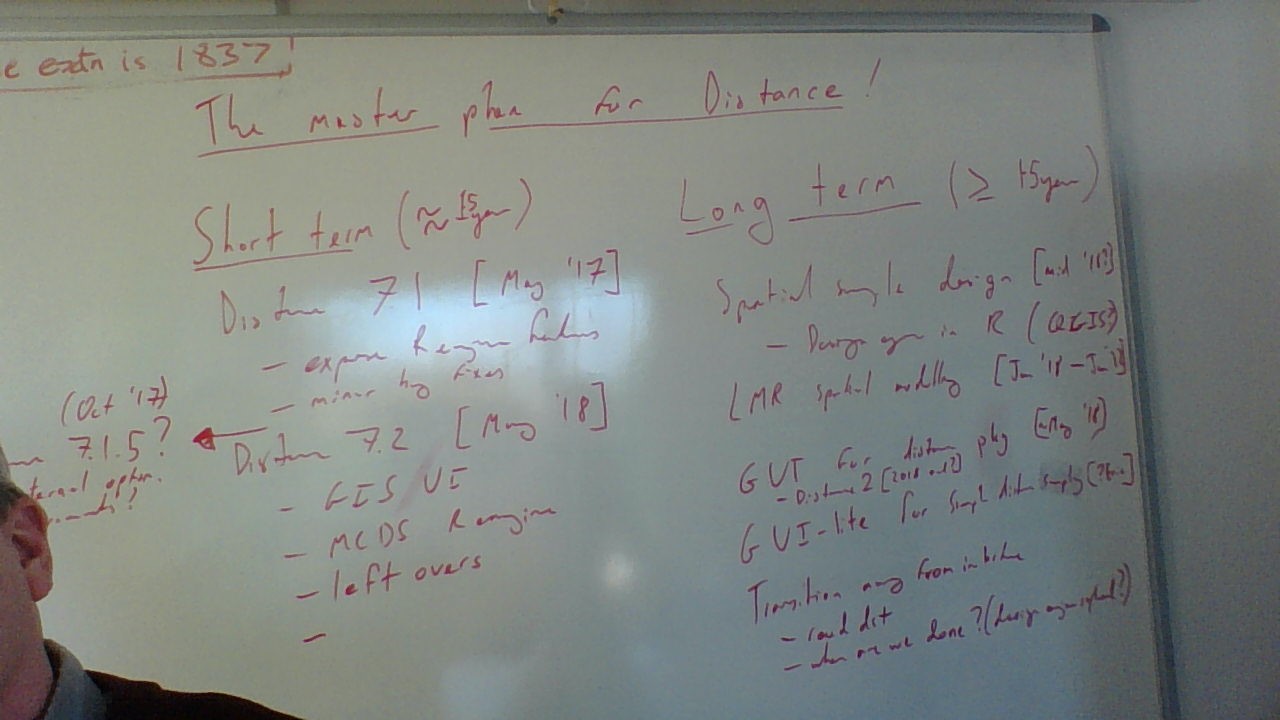 e extn is 1837!
The master plan for Distance!
Short term (≈ 1.5 year)
Distance 7.1 [May '17]
- expose R engine features
- minor bug fixes
(Oct '17)
7.1.5?
Distance 7.2 [May '18]
- GIS UI
- MCDS R engine
- left overs
-
Long term (≥ 1.5 year)
Spatial sample design [mid '18?]
- Design engine in R (QGIS?)
LMR spatial modelling [Jan '18 - Jan
GUI for distance pkg [≈May '18]
- Distance 2 [2018 end?]
GUI-lite for simple distance
Transition away from
- read dst
- when are we done? (design engine